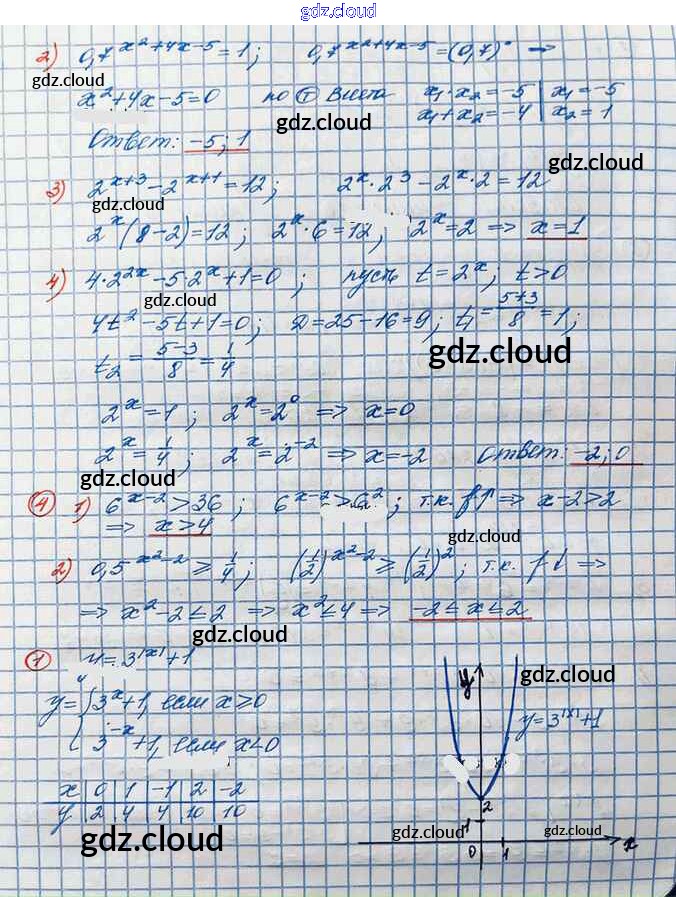 gdz.cloud
2) 0,7^(x²+4x-5) = 1; 0,7^(x²+4x-5) = (0,7)° →
gdz.cloud
x²+4x-5=0 по Ⓣ Виета x₁·x₂=-5 | x₁=-5
x₁+x₂=-4 | x₂=1
gdz.cloud
Ответ: -5; 1
gdz.cloud
3) 2^(x+3) - 2^(x+1) = 12; 2^x·2³ - 2^x·2 = 12
gdz.cloud
2^x(8-2)=12; 2^x·6=12; 2^x=2 => x=1
4) 4·2^(2x) - 5·2^x+1=0; пусть t=2^x; t>0
gdz.cloud
4t²-5t+1=0; D=25-16=9; t₁=(5+3)/8=1;
gdz.cloud
t₂=(5-3)/8=1/4
2^x=1; 2^x=2⁰ => x=0
2^x=1/4; 2^x=2^(-2) => x=-2 Ответ: -2; 0
gdz.cloud
④ 1) 6^(x-2)>36; 6^(x-2)>6²; т.к. f↑ => x-2>2
=> x>4
gdz.cloud
2) 0,5^(x²-2) ⩾ 1/4; (1/2)^(x²-2) ⩾ (1/2)²; т.к. f↓ =>
=> x²-2≤2 => x²≤4 => -2≤x≤2
gdz.cloud
① y=3^|x|+1
gdz.cloud
y={3^x+1, если x⩾0
3^(-x)+1, если x<0
y
y=3^|x|+1
x | 0 | 1 | -1 | 2 | -2
y | 2 | 4 | 4 | 10 | 10
2
1
gdz.cloud
gdz.cloud
gdz.cloud
0 1 x
gdz.cloud